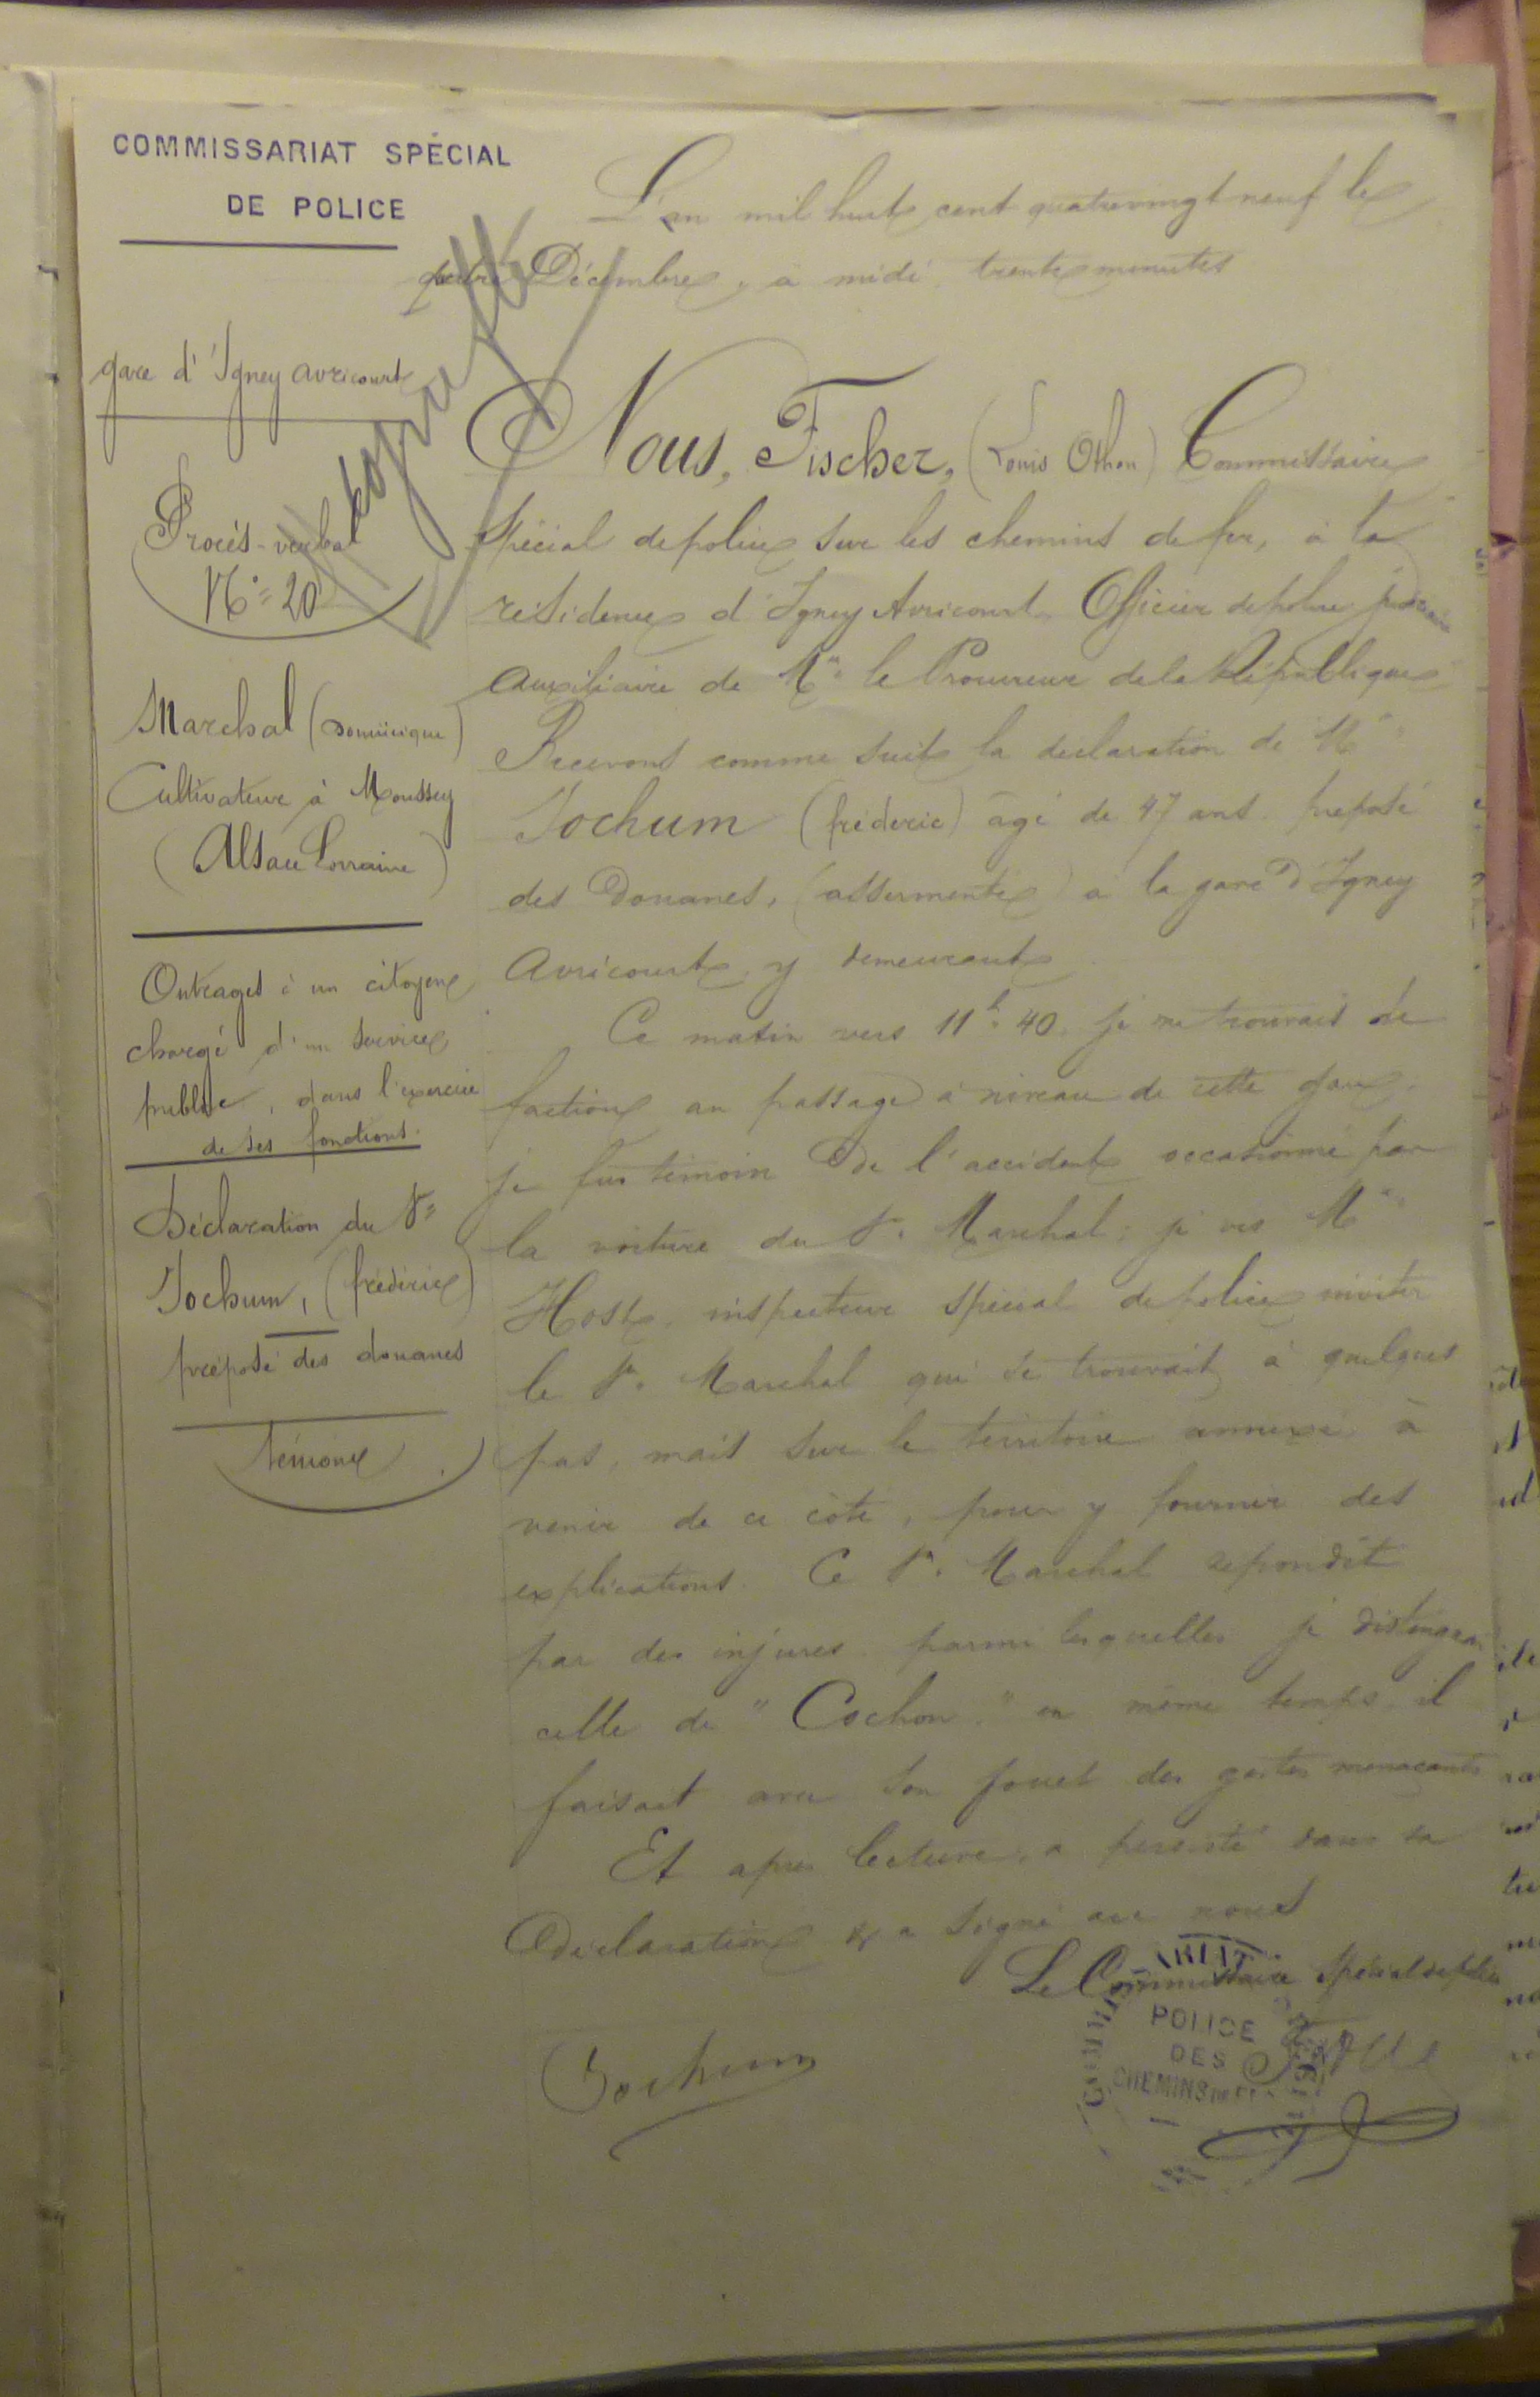 COMMISSARIAT SPÉCIAL
DE POLICE
gare d'Igney Avricourt
Procès-verbal
N° 20
Marchal (Dominique)
Cultivateur à Moussey
(Alsace Lorraine)
Outrages à un citoyen
chargé d'un service
public, dans l'exercice
de ses fonctions.
Déclaration du Sr
Jochum, (frédéric)
préposé des douanes
témoin
L'an mil huit cent quatrevingt neuf le
quatre Décembre, à midi trente minutes
Nous, Fischer, (Louis Othon) Commissaire
spécial de police sur les chemins de fer, à la
résidence d'Igney Avricourt Officier de police judiciaire
auxiliaire de Mr le Procureur de la République
Recevons comme suit la déclaration de Mr
Jochum (frédéric) âgé de 47 ans. préposé
des Douanes, (assermenté) à la gare d'Igney
Avricourt y demeurant
Ce matin vers 11h 40 je me trouvais de
faction au passage à niveau de cette gare,
je fus témoin de l'accident occasionné par
la voiture du Sr. Marchal; je vis Mr
Host, inspecteur spécial de police inviter
le Sr. Marchal qui se trouvait à quelques
pas, mais sur le territoire annexé, à
venir de ce côté, pour y fournir des
explications. Ce Sr. Marchal répondit
par des injures parmi lesquelles je distinguai
celle de "Cochon." en même temps il
faisait avec son fouet des gestes menaçants
Et après lecture, a persisté dans sa
déclaration & a signé avec nous
Le Commissaire Spécial de police
Jochum
POLICE
DES
CHEMINS DE FER